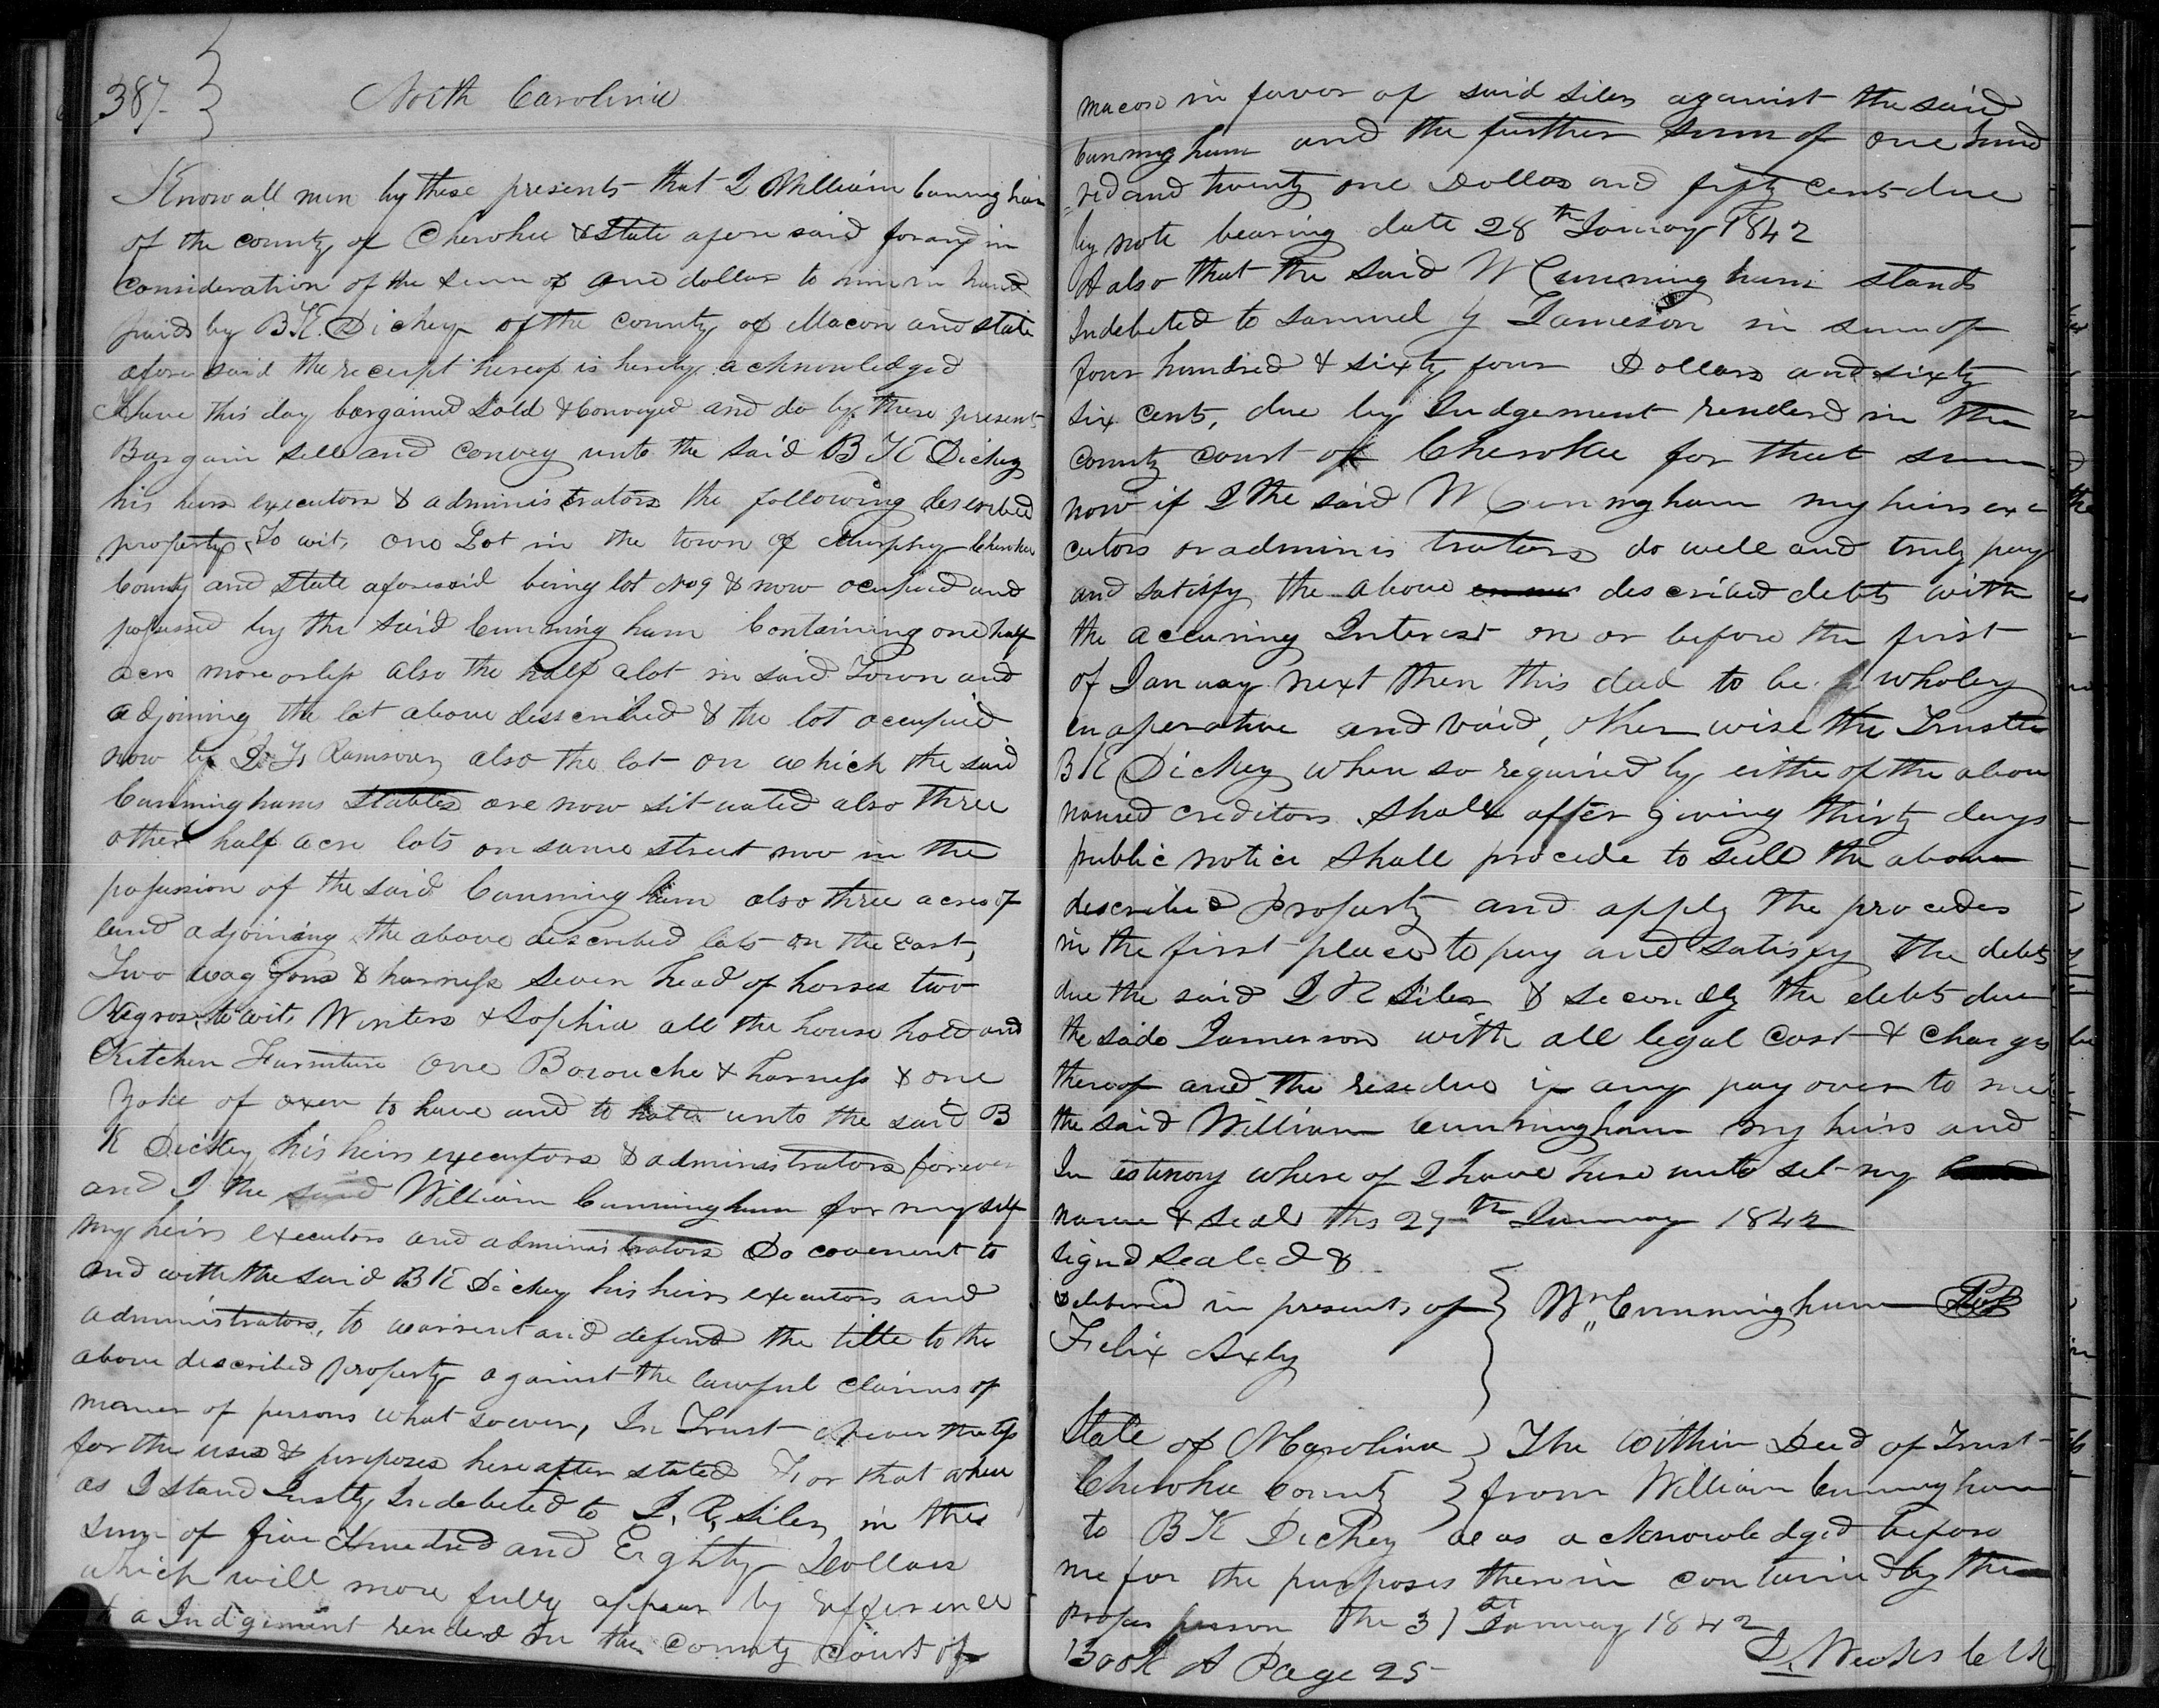 387
North Carolina
Know all men by these presents that I William Cuningham
of the county of Cherokee & State afore said for and in
consideration of the sum of one dollar to mine in hand
paid by B.K. Dickey of the county of Macon and state
afore said the receipt hereof is hereby acknowledged
Have this day bargained Sold & Conveyed and do by these presents
Bargain sell and convey unto the said B K Dickey
his heirs executors & administrators the following described
property, To wit, one Lot in the town of Murphy Cherokee
County and State aforesaid being lot No 9 & now ocupied and
possessed by the said Cunningham Containing one half
acre more or less also the half a lot in said Town and
adjoining the lot above desscribed & the lot occupied
now by Ramsour, also the lot on which the said
Cunninghams Stables are now sit uated also three
other half acre lots on same street now in the
possession of the said Cunningham also three acres of
land adjoining the above described lots on the East,
Two waggons & harness seven head of horses two
Negros, to wit, Winters & Sophia all the house hold and
Kitchen Furniture one Borouche & harness & one
Yoke of oxen to have and to hold unto the said B
K Dickey his heirs executors & administrators forever
and I the said William Cunningham for my self
my heirs executors and administrators Do covenent to
and with the said B K Dickey his heirs executors and
administrators, to warrent and defend the title to the
above described property against the lawful claims of
maner of persons what soever, In Trust Never the less
for the uses & purposes here after stated For that where
as I stand Justly Indebeted to J. R. Siler, in the
sum of five Hundred and Eighty Dollars
which will more fully appear by refference
to a Indgement renderd in the County Court of
macon in favor of said Siler against the said
Cunningham and the further sum of one hund
red and twenty one Dollars and fifty cents due
by note bearing date 28th January 1842
& also that the said W Cunningham stands
Indebeted to Samuel Y Jameson in sum of
four hundred & sixty four Dollars and sixty
six cents, due by Judgement renderd in the
county court of Cherokee for that sum
now if I the said W Cunningham my heirs exe
cutors or adminis trators do well and truly pay
and satisfy the above described debts with
the accuring Interest on or before the first
of January next then this deed to be wholey
in operative and void, other wise the Trustee
B K Dickey when so required by eithe of the above
named creditors shall after giving thirty days
public notice shall procede to sell the above
described property and apply the procedes
in the first place to pay and satisfy the debts
due the said J R Siler & secondly the debts due
the said Jamerson with all legal cost & charges
thereof and the residue if any pay over to me
the said William Cunningham my heirs and
In estimony where of I have here unto set my
name & Seal ths 29th January 1842
signd sealed &
Delivered in presents of
Wm Cunningham
Felix Axly
State of N Carolina
Cherokee County
The within Deed of Trust
from William Cunningham
to B K Dickey was acknowledged before
me for the purposes therein contained by the
proper person the 31st January 1842
D. Weeks Clk
Book A Page 25